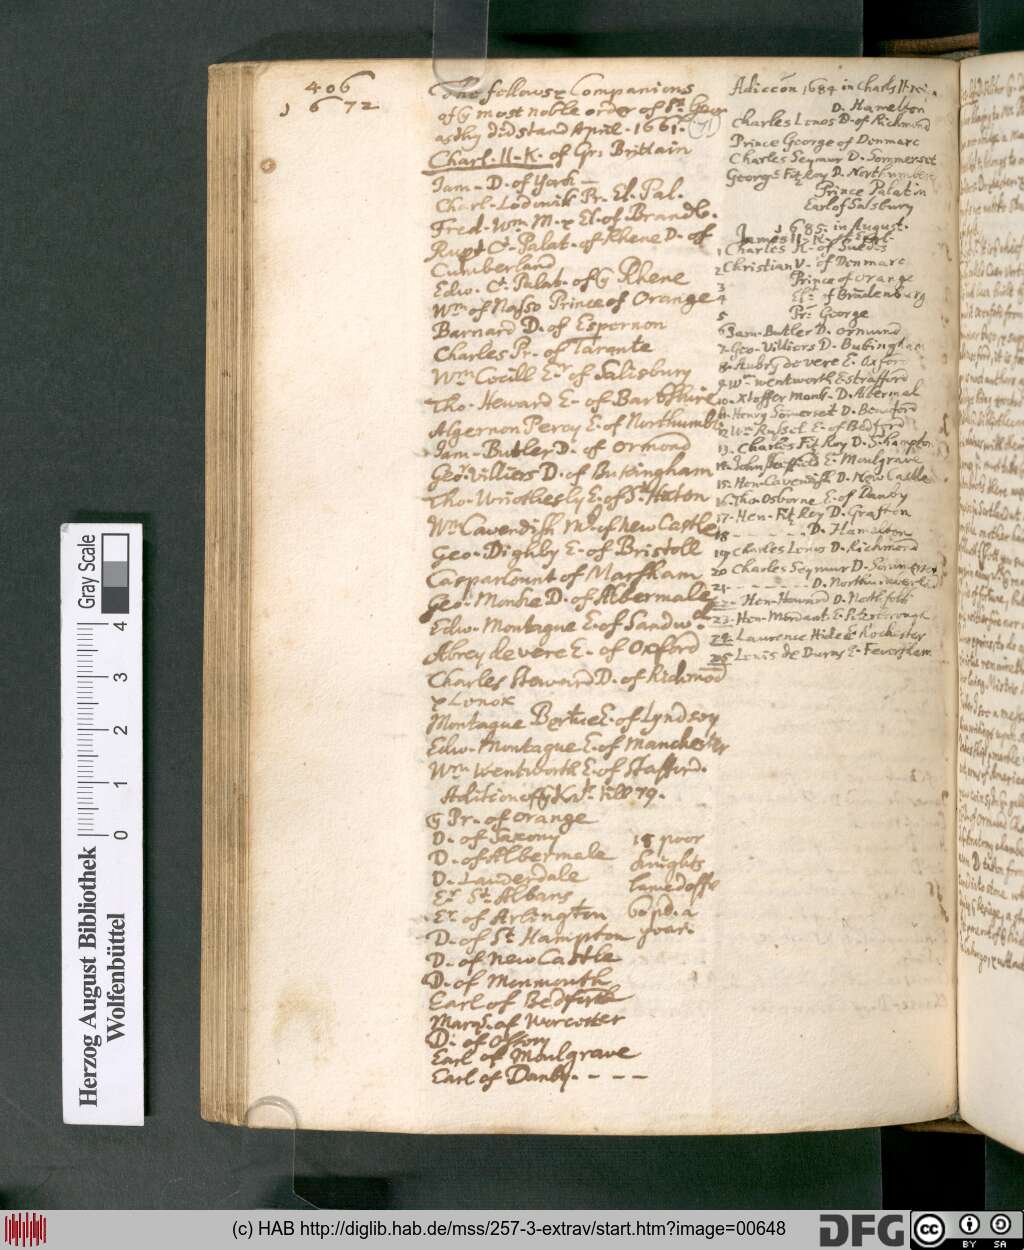 406
1672
The fellows & Companions
of ye most noble order of St. Geor
as they did stand April. 1661.
Charl. II. K. of Gr: Brittain
Jam. D. of York
Charl. Lodowik Pr. El. Pal.
Fred. Wm. M. & El. of Brandb.
Rupt Ct. Palat. of Rhene D. of
Cumberland
Edw. Ct. Palat. of ye Rhene
Wm. of Nasso Prince of Orange
Barnard D. of Espernon
Charles Pr. of Tarante
Wm. Cecill Er. of Salisbury
Tho. Heward E. of Barkshire
Algernon Percy E. of Northumbr
Jam. Butler D. of Ormond
Geo. Villiers D. of Bukingham
Tho. Wriothesly E. of St. Hāton
Wm. Cavendish M. of New Castle
Geo. Dighby E. of Bristoll
Caspar Count of Marsham
Geo. Monke D. of Albermale
Edw. Montague E. of Sandwch
Abrey de vere E. of Oxford
Charles Steward D. of Richmod
& Lenox
Montague Bertue E. of Lyndsey
Edw. Montague E. of Manchester
Wm. Wentworth E. of Stafford.
Adition of ye Kts. till 79.
ye Pr. of Orange
D. of Saxony
D. of Albermale
D. Lauderdale
Er. St. Albans
Er. of Arlington
D. of St Hampton
D. of New Castle
D. of Monmouth
Earl of Bedford
Marqs. of Worcotter
D. of Ossory
Earl of Moulgrave
Earl of Danby. - - - -
18 poor
knights
lamed offr
pd. a
year.
Adiccon 1684 in Charls II
D. Hamelton
Charles Lenos D. of Richmond
Prince George of Denmarc
Charles Seymur D. Sommerset
George Fitz Roy D. Northumber
Prince Palatin
Earl of Salsbury
1685. in August.
James II. K. of Engl.
1 Charles K. of Suedes
2 Christian V. of Denmarc
3 Prince of Orange
4 Elr. of Brādenburg
5 Pr. George
6 Jam. Butler D. Ormund
7. Geo. Villiers D. Bukingham
8. Aubry de vere E. Oxford
9. Wm. Wentworth E strafford
10. Xtoffer Monk. D. Albermal
11. Henry Somerset D. Beuford
12 Wm. Russel E. of Bedford
13. Charles Fitz Roy D. S. hampton
14. John Sheffield E. Moulgrave
15. Hen. Cavendish D. New Castle
16. Tho. Osborne E. of Danby
17. Hen. Fitz Roy D. Grafton
18 - - - - - D. Hamelton
19 Charles Lenos D. Richmond
20 Charles Seymur D. Somerset
21. - - - - - D. Northumberland
22. Hen. Howard D. Northfolk
23. Hen. Mordant E. Peterborough
24. Laurence Hide E Rochester
25 Louis de Duras E. Feversham
Gray Scale
0 1 2 3 4
Herzog August Bibliothek
Wolfenbüttel
(c) HAB http://diglib.hab.de/mss/257-3-extrav/start.htm?image=00648
DFG
cc BY SA